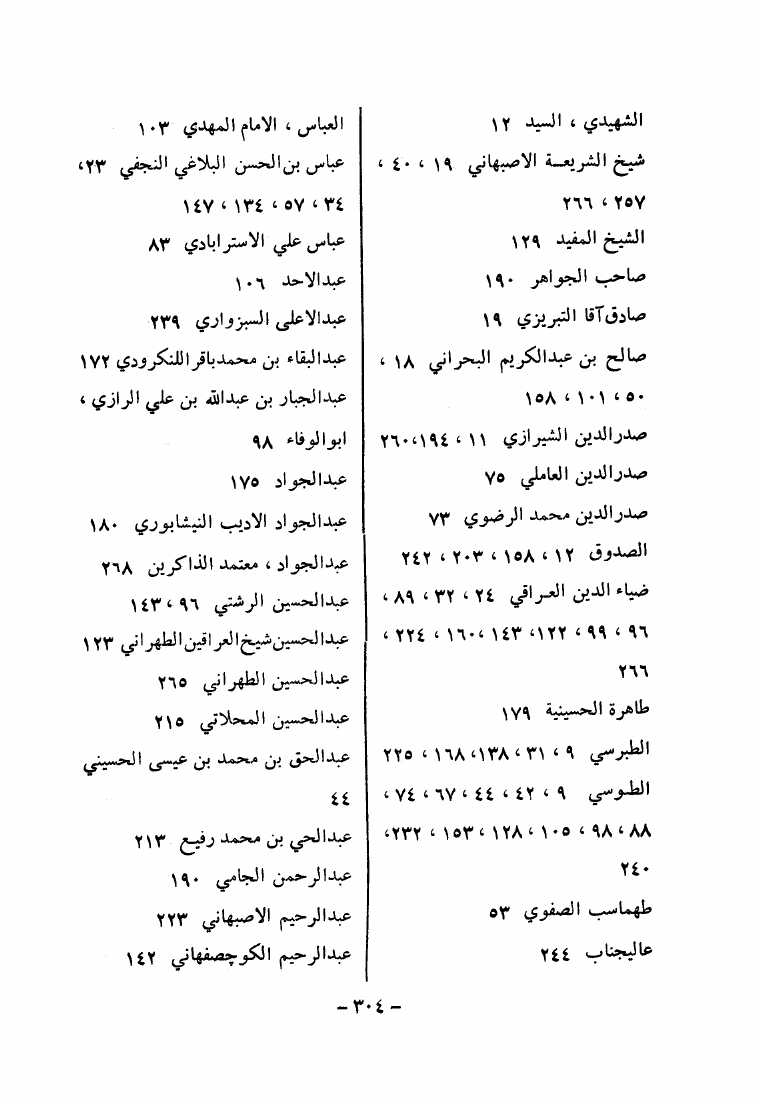 الشهيدي ، السيد ١٢
شيخ الشريعـة الاصبهاني ١٩ ، ٤٠ ،
٢٥٧ ، ٢٦٦
الشيخ المفيد ١٢٩
صاحب الجواهر ١٩٠
صادق آقا التبريزي ١٩
صالح بن عبدالكريم البحراني ١٨ ،
٥٠ ، ١٠١ ، ١٥٨
صدرالدين الشيرازي ١١ ، ١٩٤، ٢٦٠
صدرالدين العاملي ٧٥
صدرالدين محمد الرضوي ٧٣
الصدوق ١٢ ، ١٥٨ ، ٢٠٣ ، ٢٤٢
ضياء الدين العراقي ٢٤ ، ٣٢ ، ٨٩ ،
٩٦ ، ٩٩ ، ١٢٢، ١٤٣ ، ١٦٠ ، ٢٢٤ ،
٢٦٦
طاهرة الحسينية ١٧٩
الطبرسي ٩ ، ٣١ ، ١٣٨، ١٦٨ ، ٢٢٥
الطوسي ٩ ، ٤٢ ، ٤٤ ، ٦٧ ، ٧٤ ،
٨٨ ، ٩٨ ، ١٠٥ ، ١٢٨ ، ١٥٣ ، ٢٣٢،
٢٤٠
طهماسب الصفوي ٥٣
عاليجناب ٢٤٤
العباس ، الامام المهدي ١٠٣
عباس بن الحسن البلاغي النجفي ٢٣،
٣٤ ، ٥٧ ، ١٣٤ ، ١٤٧
عباس علي الاسترابادي ٨٣
عبدالاحد ١٠٦
عبدالاعلى السبزواري ٢٣٩
عبدالبقاء بن محمدباقر اللنكرودي ١٧٢
عبدالجبار بن عبدالله بن علي الرازي ،
ابوالوفاء ٩٨
عبدالجواد ١٧٥
عبدالجواد الاديب النيشابوري ١٨٠
عبدالجواد ، معتمد الذاكرين ٢٦٨
عبدالحسين الرشتي ٩٦ ، ١٤٣
عبدالحسين شيخ العراقين الطهراني ١٢٣
عبدالحسين الطهراني ٢٦٥
عبدالحسين المحلاتي ٢١٥
عبدالحق بن محمد بن عيسى الحسيني
٤٤
عبدالحي بن محمد رفيع ٢١٣
عبدالرحمن الجامي ١٩٠
عبدالرحيم الاصبهاني ٢٢٣
عبدالرحيم الكوچصفهاني ١٤٢
- ٣٠٤ -